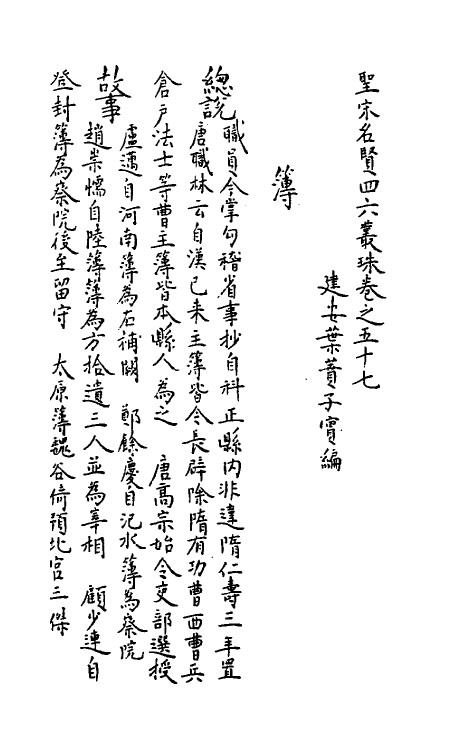 聖宋名賢四六叢珠卷之五十七
建安葉蕡子實編
簿
總說職員令掌勾稽省事抄自科正縣內非違隋仁壽三年置
唐職林云自漢已來主簿皆令長辟除隋有功曹西曹兵
倉戶法士等曹主簿皆本縣人為之　唐高宗始令吏部選授
故事盧邁自河南簿為右補闕　鄭餘慶自汜水簿為察院
趙崇懦自陸簿簿為方拾遺三人並為宰相　顧少連自
登封簿為察院後至留守　太原簿魏谷倚預北宮三傑